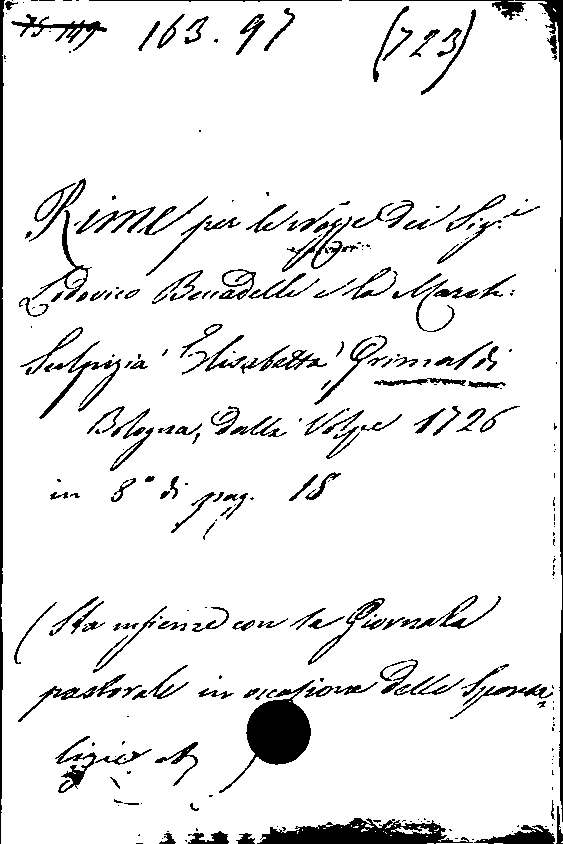 75 149 163.97 (723)
Rime per le nozze dei Sig.i
Lodovico Beccadelli e la March:
Sulpizia Elisabetta Grimaldi
Bologna, dalla Volpe 1726
in 8° di pag. 18
(Sta insieme con la Giornata
pastorale in occasione dello Sponsa
lizio